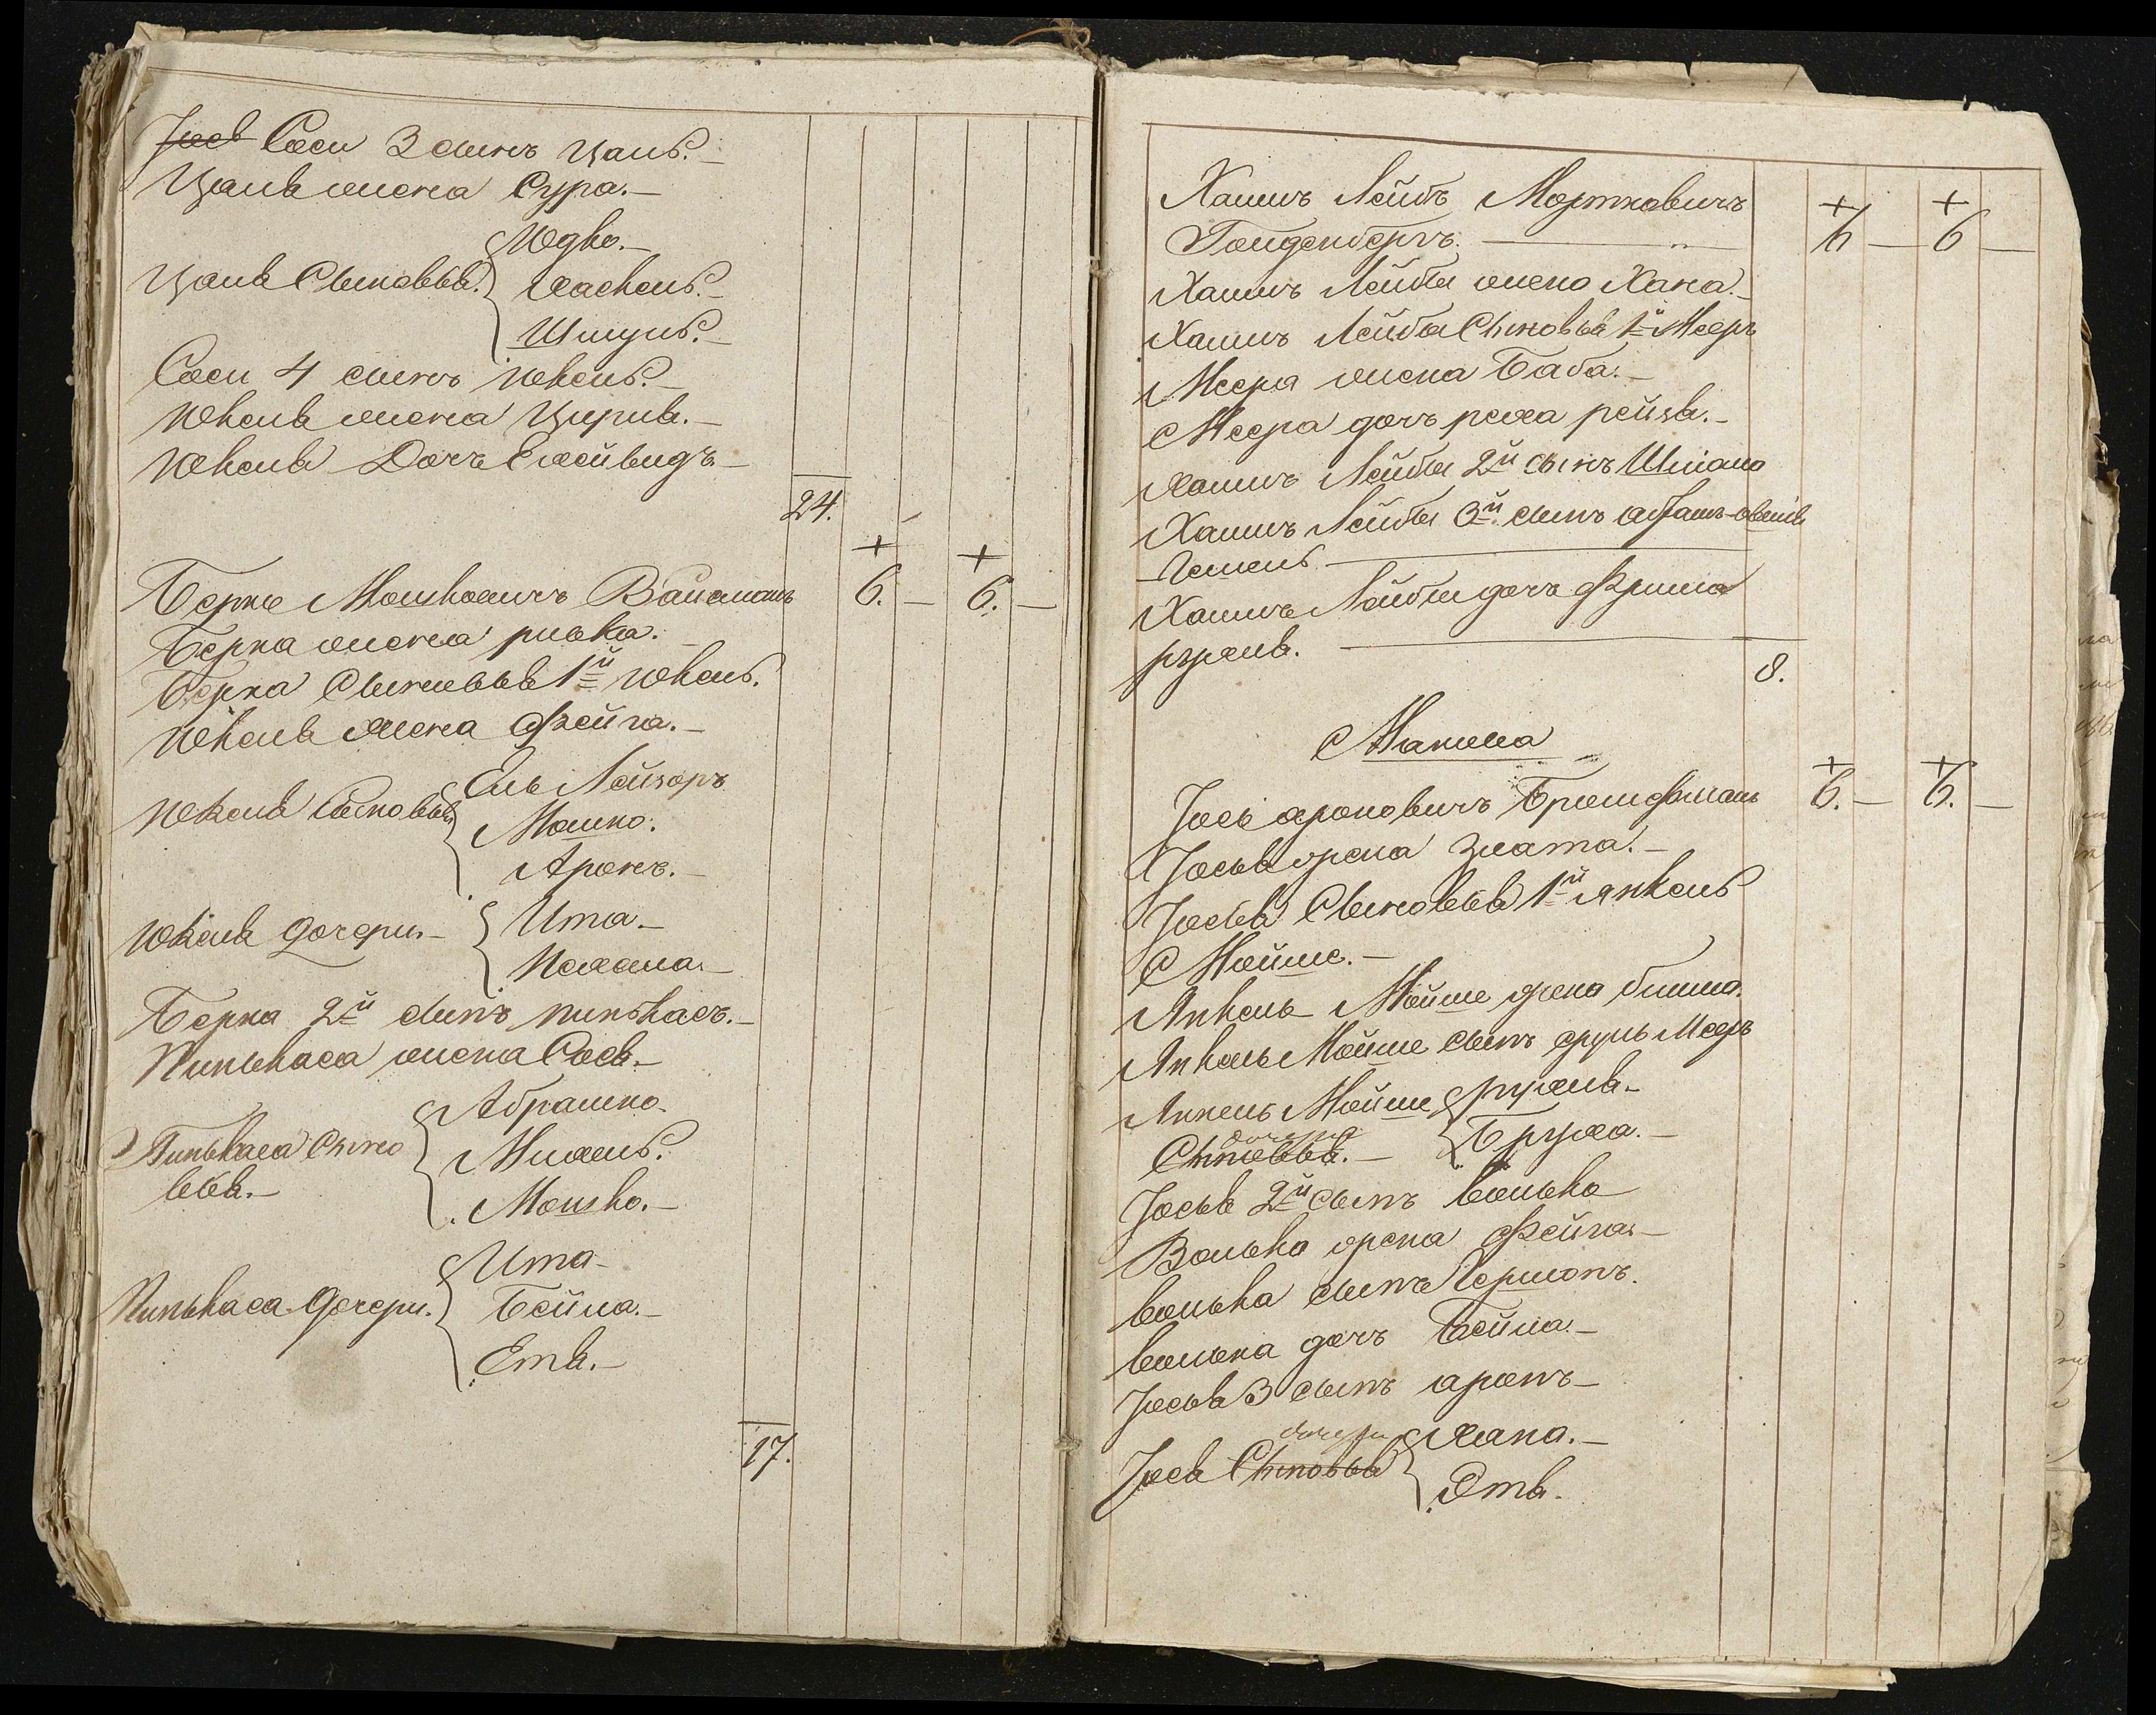 Іосѣ Соси 3 сынъ Цалѣ.
Цаля жена Сура.
Цаля Сыновья.
Юдко.
Хаскель.
Шмуль.
Соси 4 сынъ Юкель.
Юкеля жена Цирля.
Юкеля Дочь
24.
Берко Мошковичъ Вайсманъ 6. 6.
Берка жена ривка.
Берка Сыновья 1й Юкель.
Юкеля жена Фейга.
Юкеля Сыновья
Ель Лейзоръ
Мошко.
Аронъ.
Юкеля Дочери
Ита.
Нехама.
Берка 2й сынъ пинькасъ.
Пинькаса жена Сося.
Пинькаса Сыно
вья.
Абрамко
Михель.
Мошко.
Пинькаса Дочери.
Ита
Бейла.
Етя.
17.
Хаимъ Лейбъ Мортковичъ
Гольденбергъ. 6 6
Хаимъ Лейбы жена Хана.
Хаимъ Лейбы Сыновья 1й Мееръ
Меера жена Баба.
Меера дочь рейзя.
Хаимъ Лейбы 2й сынъ
Хаимъ Лейбы 3й сынъ
Хаимъ Лейбы дочь Фрима
рухля.
8.
Іось ароновичъ 6. 6.
Іося жена Злата.
Іося Сыновья 1й янкель
Мойше.
Янкель Мойше жена
Янкель Мойше сынъ сруль Меер
Янкель Мойше
Сыновья. дочери
рухля
Бруха.
Іося 2й сынъ волько
Волько жена Фейга
волька сынъ Гершонъ.
волька дочь Бейла.
Іося 3 сынъ аронъ
Іося Сыновья дочери
Хана.
Этя.